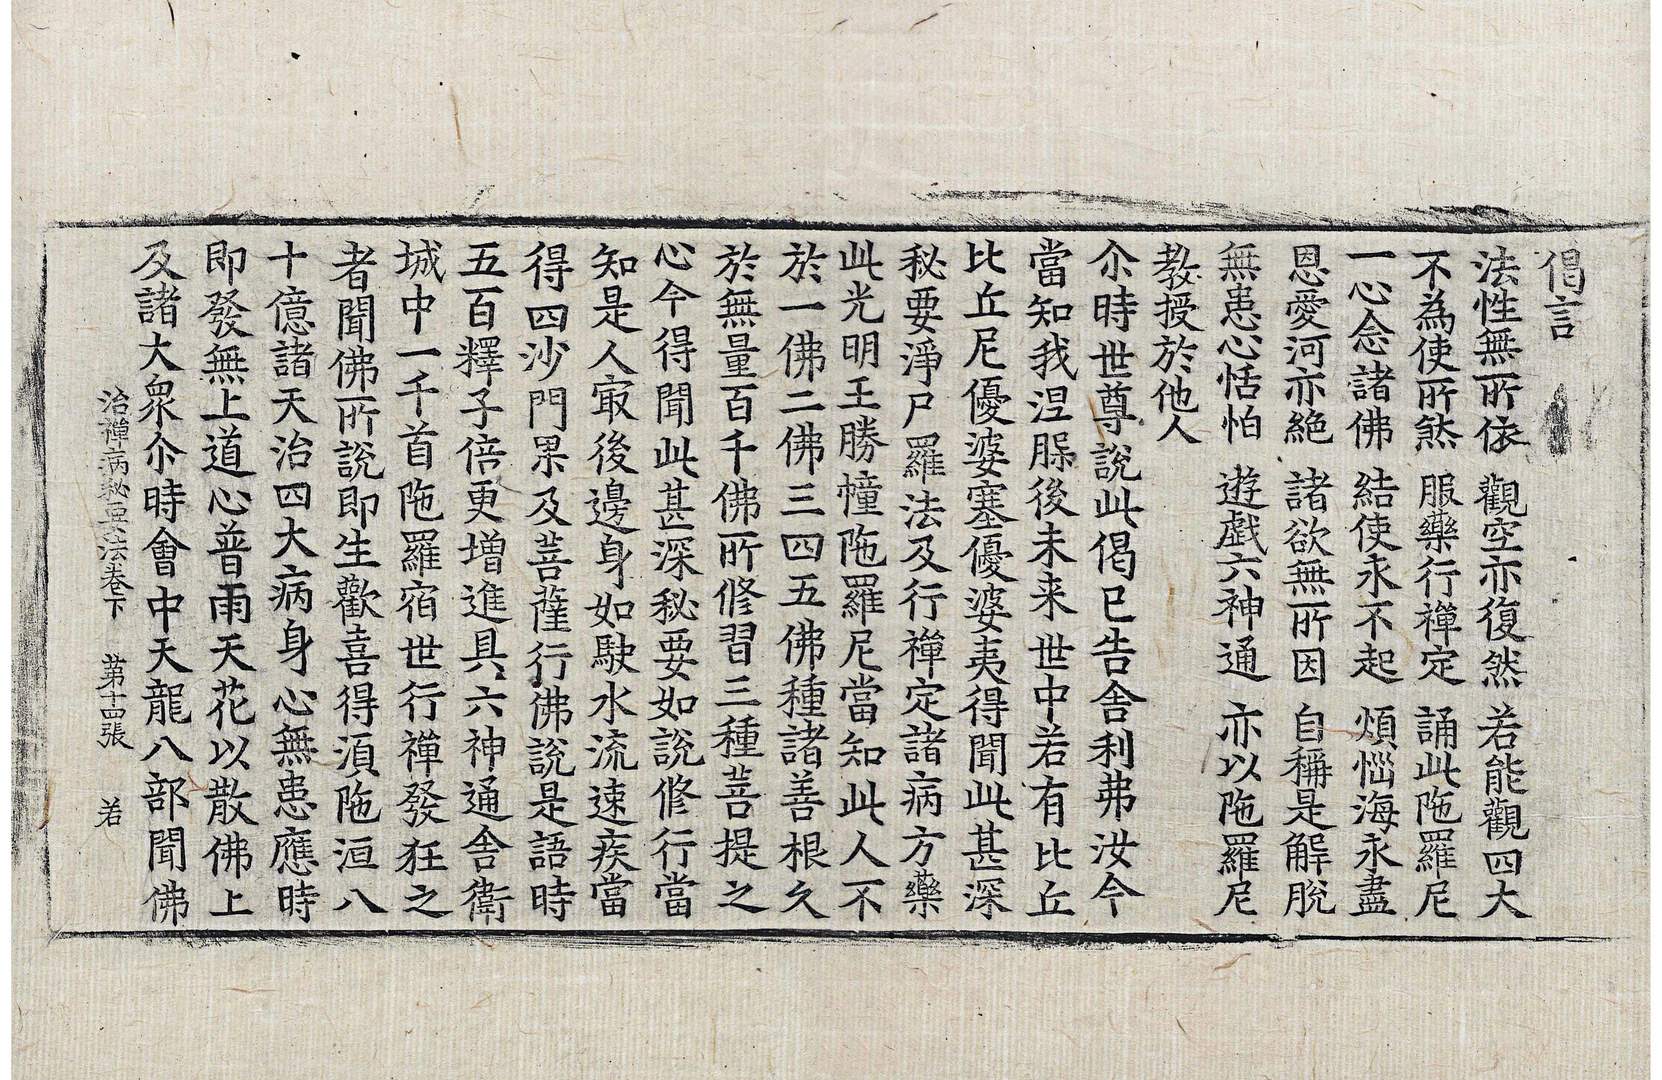 偈言
法性無所依 觀空亦復然 若能觀四大
不為使所煞 服藥行禪定 誦此陁羅尼
一心念諸佛 結使永不起 煩惱海永盡
恩愛河亦絶 諸欲無所因 自稱是解脫
無患心恬怕 遊戱六神通 亦以陁羅尼
教授於他人
尒時世尊說此偈已告舍利弗汝今
當知我涅槃後未来世中若有比丘
比丘尼優婆塞優婆夷得聞此甚深
秘要淨尸羅法及行禪定諸病方藥
此光明王勝幢陁羅尼當知此人不
於一佛二佛三四五佛種諸善根久
於無量百千佛所修習三種菩提之
心今得聞此甚深秘要如說修行當
知是人㝡後邊身如駛水流速疾當
得四沙門果及菩薩行佛說是語時
五百釋子倍更增進具六神通舍衛
城中一千首陁羅宿世行禪發狂之
者聞佛所說即生歡喜得湏陁洹八
十億諸天治四大病身心無患應時
即發無上道心普雨天花以散佛上
及諸大衆尒時會中天龍八部聞佛
治禪病秘要法卷下 第十四張 若